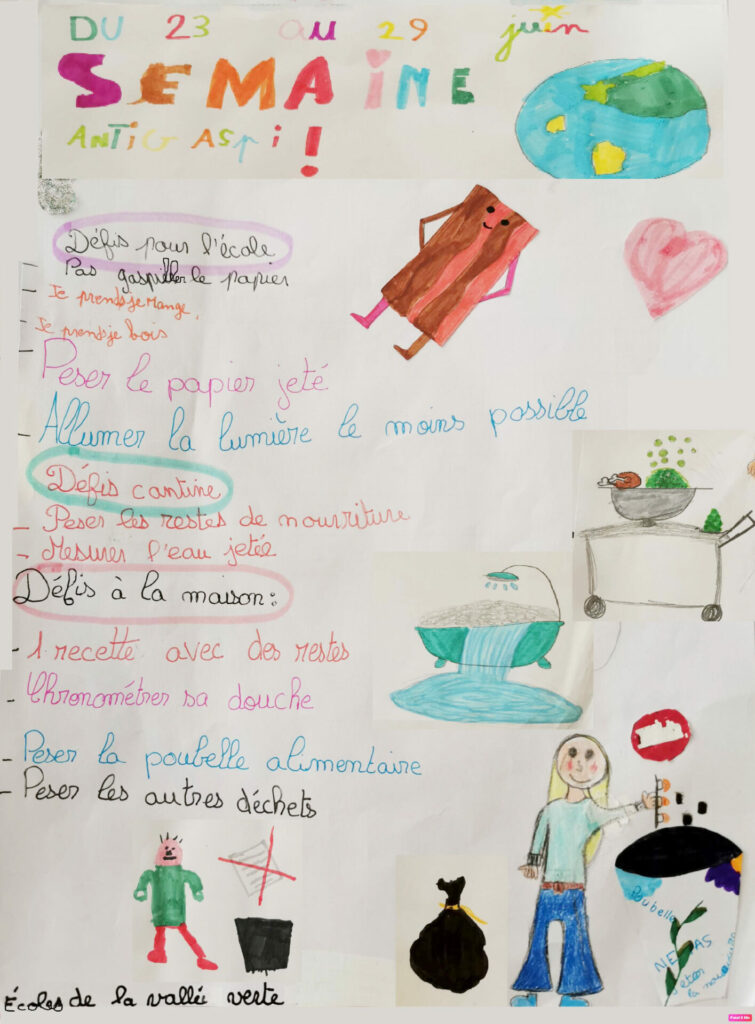 DU 23 AU 29 juin
SEMAINE
ANTIGASPI !
Défis pour l'école
Pas gaspiller le papier
Je prends je mange,
Je prends je bois
- Peser le papier jeté
- Allumer la lumière le moins possible
Défis cantine
- Peser les restes de nourriture
- Mesurer l'eau jetée
Défis à la maison :
- 1 recette avec des restes
- Chronométrer sa douche
- Peser la poubelle alimentaire
- Peser les autres déchets
Poubelle
NE PAS
jeter
la nourriture
Écoles de la vallée verte